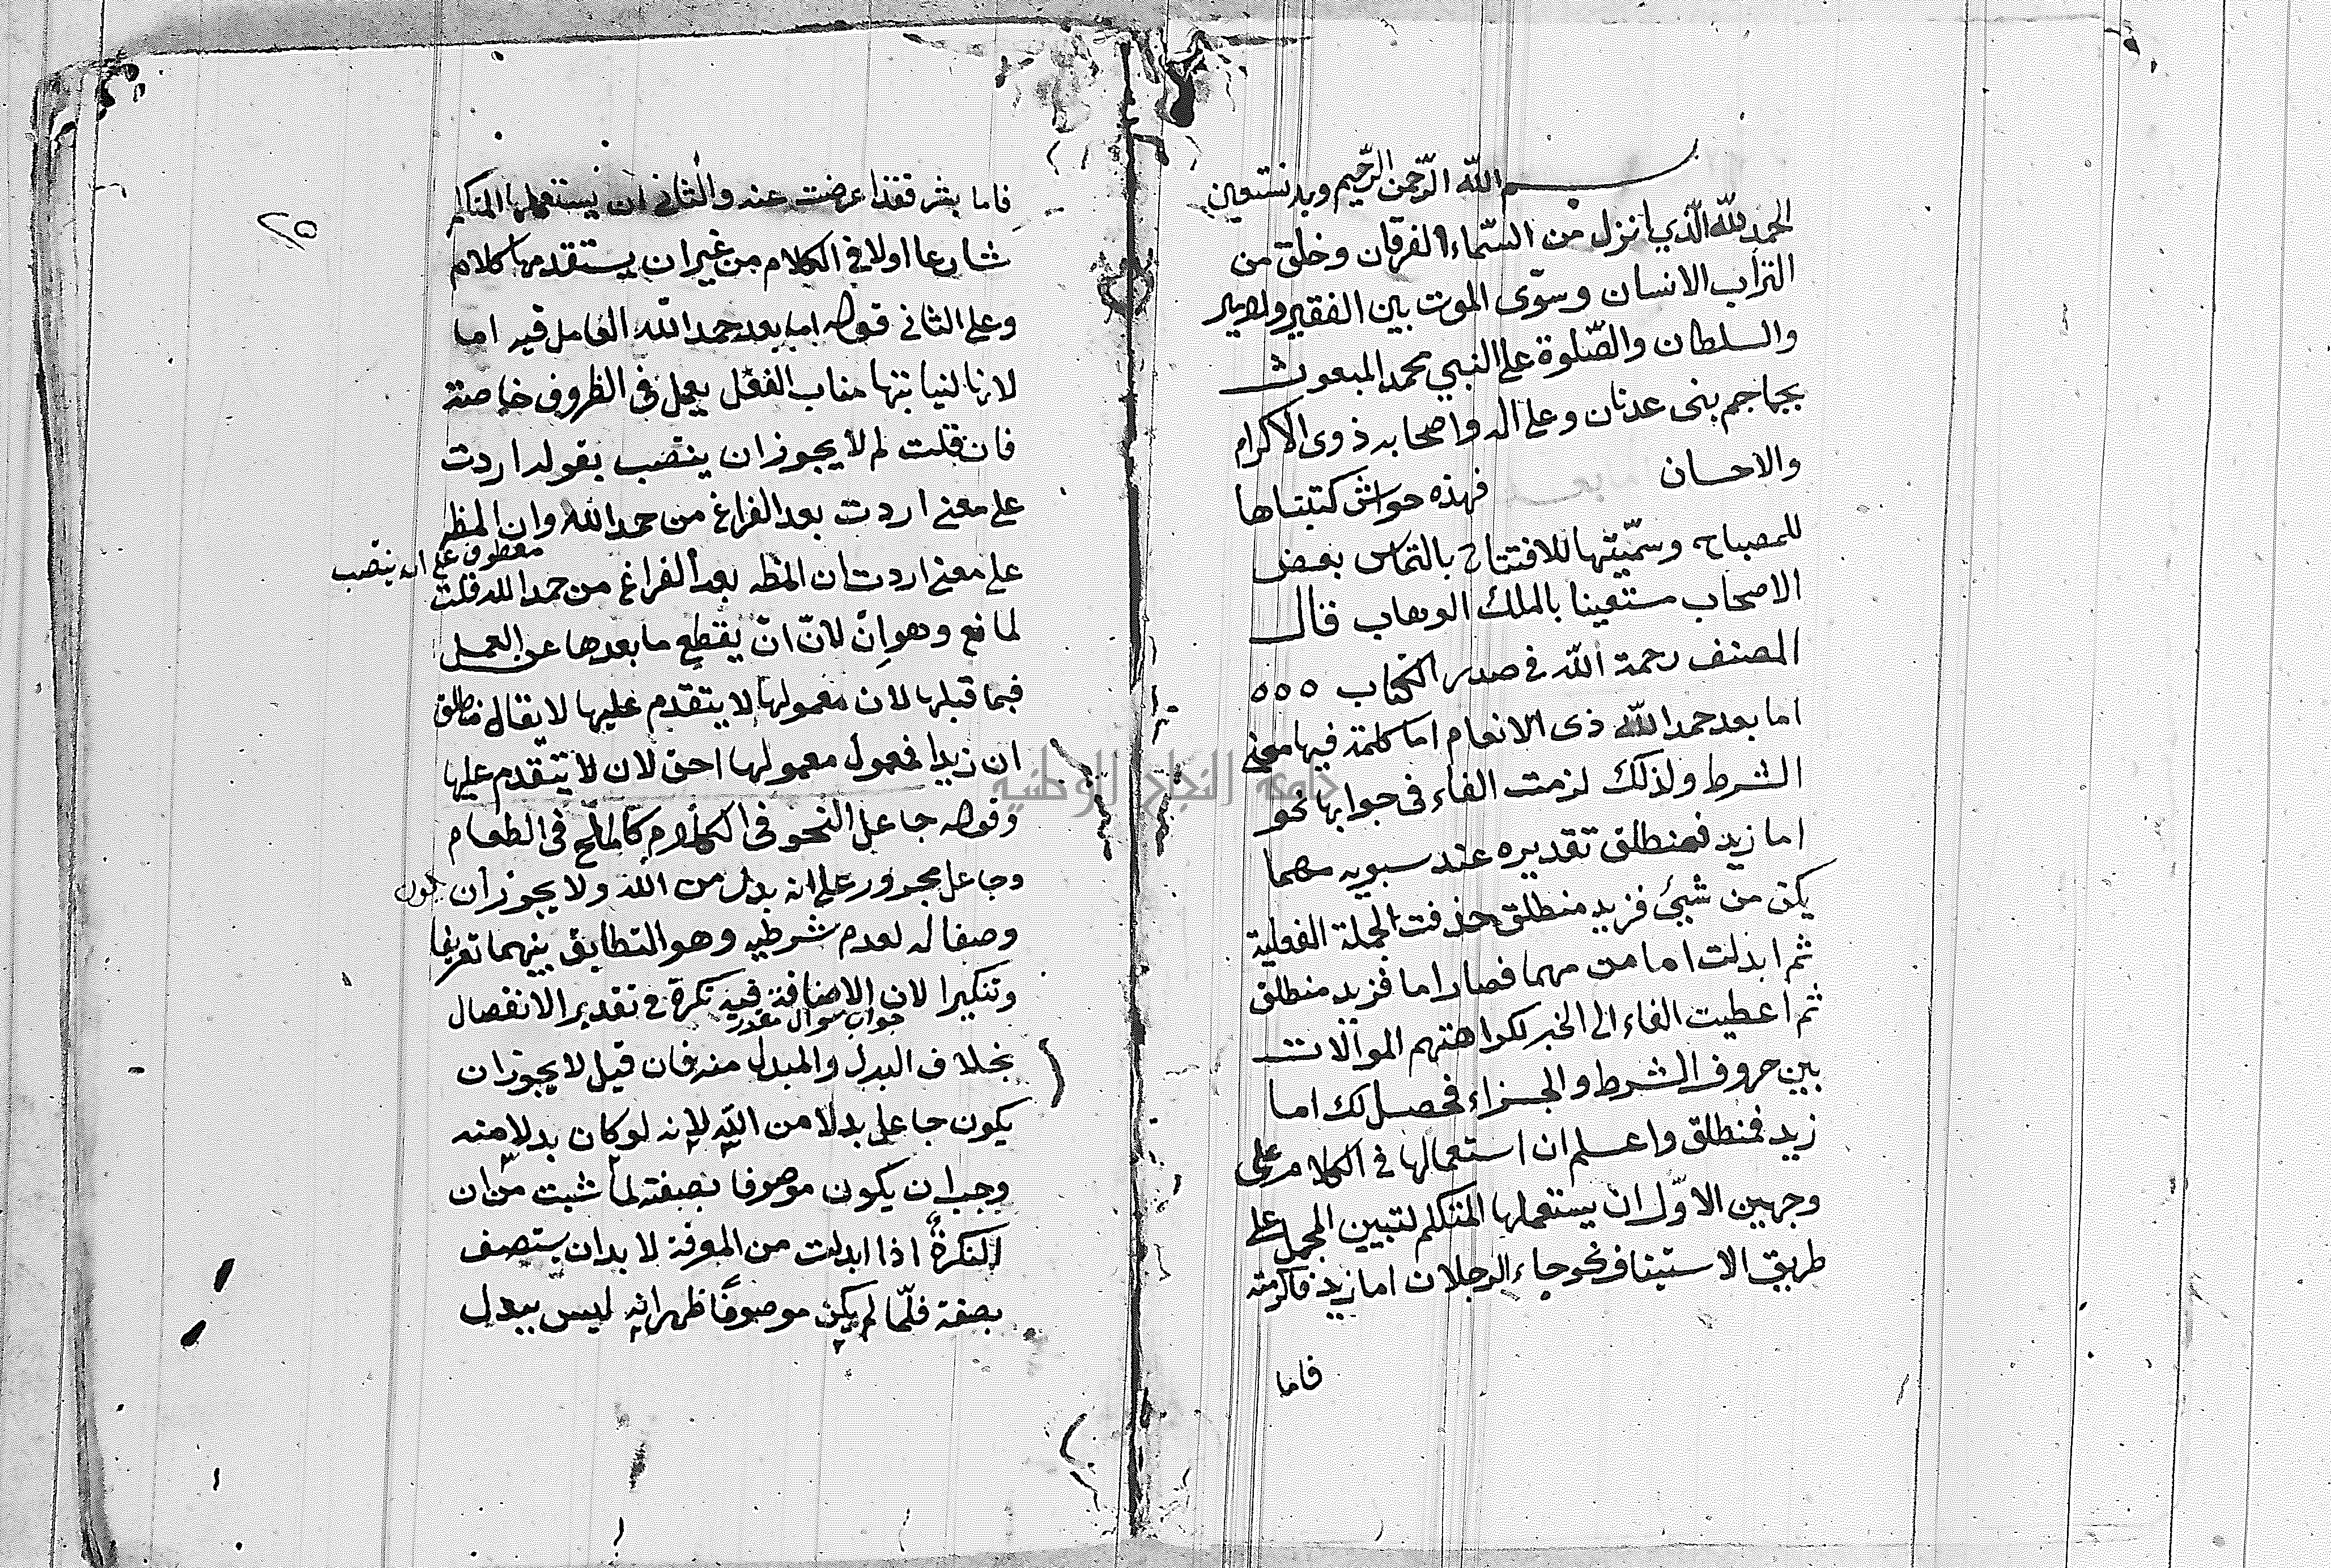 بسم الله الرحمن الرحيم وبه نستعين
الحمد لله الذي انزل من السماء الفرقان وخلق من
التراب الانسان وسوّى الموت بين الفقير والامير
والسلطان والصّلوة على النبي محمد المبعوث
بجماجم بنى عدنان وعلى اله واصحابه ذوى الاكرام
والاحسان بعد فهذه حواش كتبتاها
للمصباح وسمّيتها للافتتاح بالتماس بعض
الاصحاب مستعينا بالملك الوهاب قال
المصنف رحمة الله في صدر الكتاب ٥٥٥
اما بعد حمد الله ذى الانعام اما كلمة فيها معنى
الشرط ولذلك لزمت الفاء فى جوابها نحو
اما زيد فمنطلق تقديره عند سبويه مهما
يكن من شيئ فزيد منطلق حذفت الجملة الفعلية
ثم ابدلت اما من مهما فصار اما فزيد منطلق
ثم اعطيت الفاء الى الخبر لكراهتهم الموالات
بين حروف الشرط والجزاء فحصل لك اما
زيد فمنطلق واعلم ان استعمالها في الكلام على
وجهين الاوّل ان يستعملها المتكلم لتبيين المجمل على
طريق الاستيناف نحو جاء الرجلان اما زيد فاكرمته
فاما
٢٥
فاما بشر فقد اعرضت عنه والثانى ان يستعملها المتكلم
شارعا اولا في الكلام من غير ان يستقدمها كلام
وعلى الثانى قوله اما بعد حمد الله العامل فيه اما
لانها لنيابتها مناب الفعل يعمل فى الظروف خاصة
فان قلت لم لا يجوز ان ينتصب بقوله اردت
على معنى اردت بعد الفراغ من حمد الله وان المظه
معطوف على ان ينتصب
على معنى اردت ان المظه بعد الفراغ من حمد الله قلت
لمانع وهو انّ لانّ انّ يقطع ما بعدها عن العمل
فيما قبلها لان معمولها لا يتقدم عليها لا يقال منطلق
ان زيدا فمعمول معمولها احق لان لا يتقدم عليها
وقوله جاعل النحو فى الكلام كالملح فى الطعام
وجاعل مجرور على انه بدل من الله ولا يجوز ان يكون
وصفا له لعدم شرطيه وهو التطابق بينهما تعريفا
وتنكيرا لان الاضافة فيه نكرة في تقدير الانفصال
جواب سوال مقدر
بخلاف البدل والمبدل منه فان قيل لا يجوز ان
يكون جاعل بدلا من الله لانه لو كان بدلا منه
وجب ان يكون موصوفا بصفته لما ثبت من ان
النكرة اذا ابدلت من المعرفة لا بد ان يستصف
بصفة فلمّا لم يكن موصوفا ظهر انه ليس ببدل
جامعة النجاح الوطنية